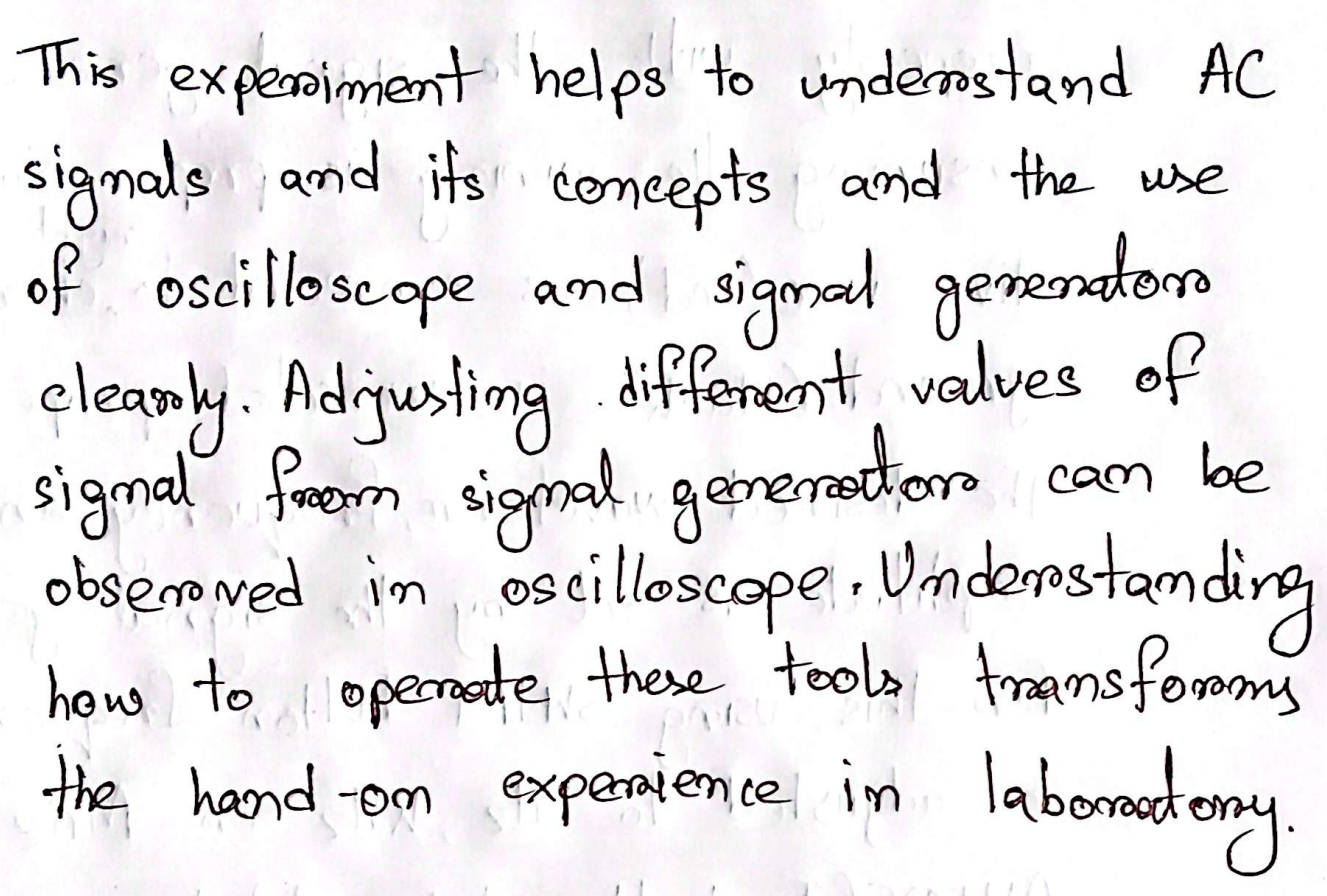 This experiment helps to understand AC
signals and its concepts and the use
of oscilloscope and signal generator
clearly. Adjusting different values of
signal from signal generator can be
observed in oscilloscope. Understanding
how to operate these tools transforms
the hand-on experience in laboratory.